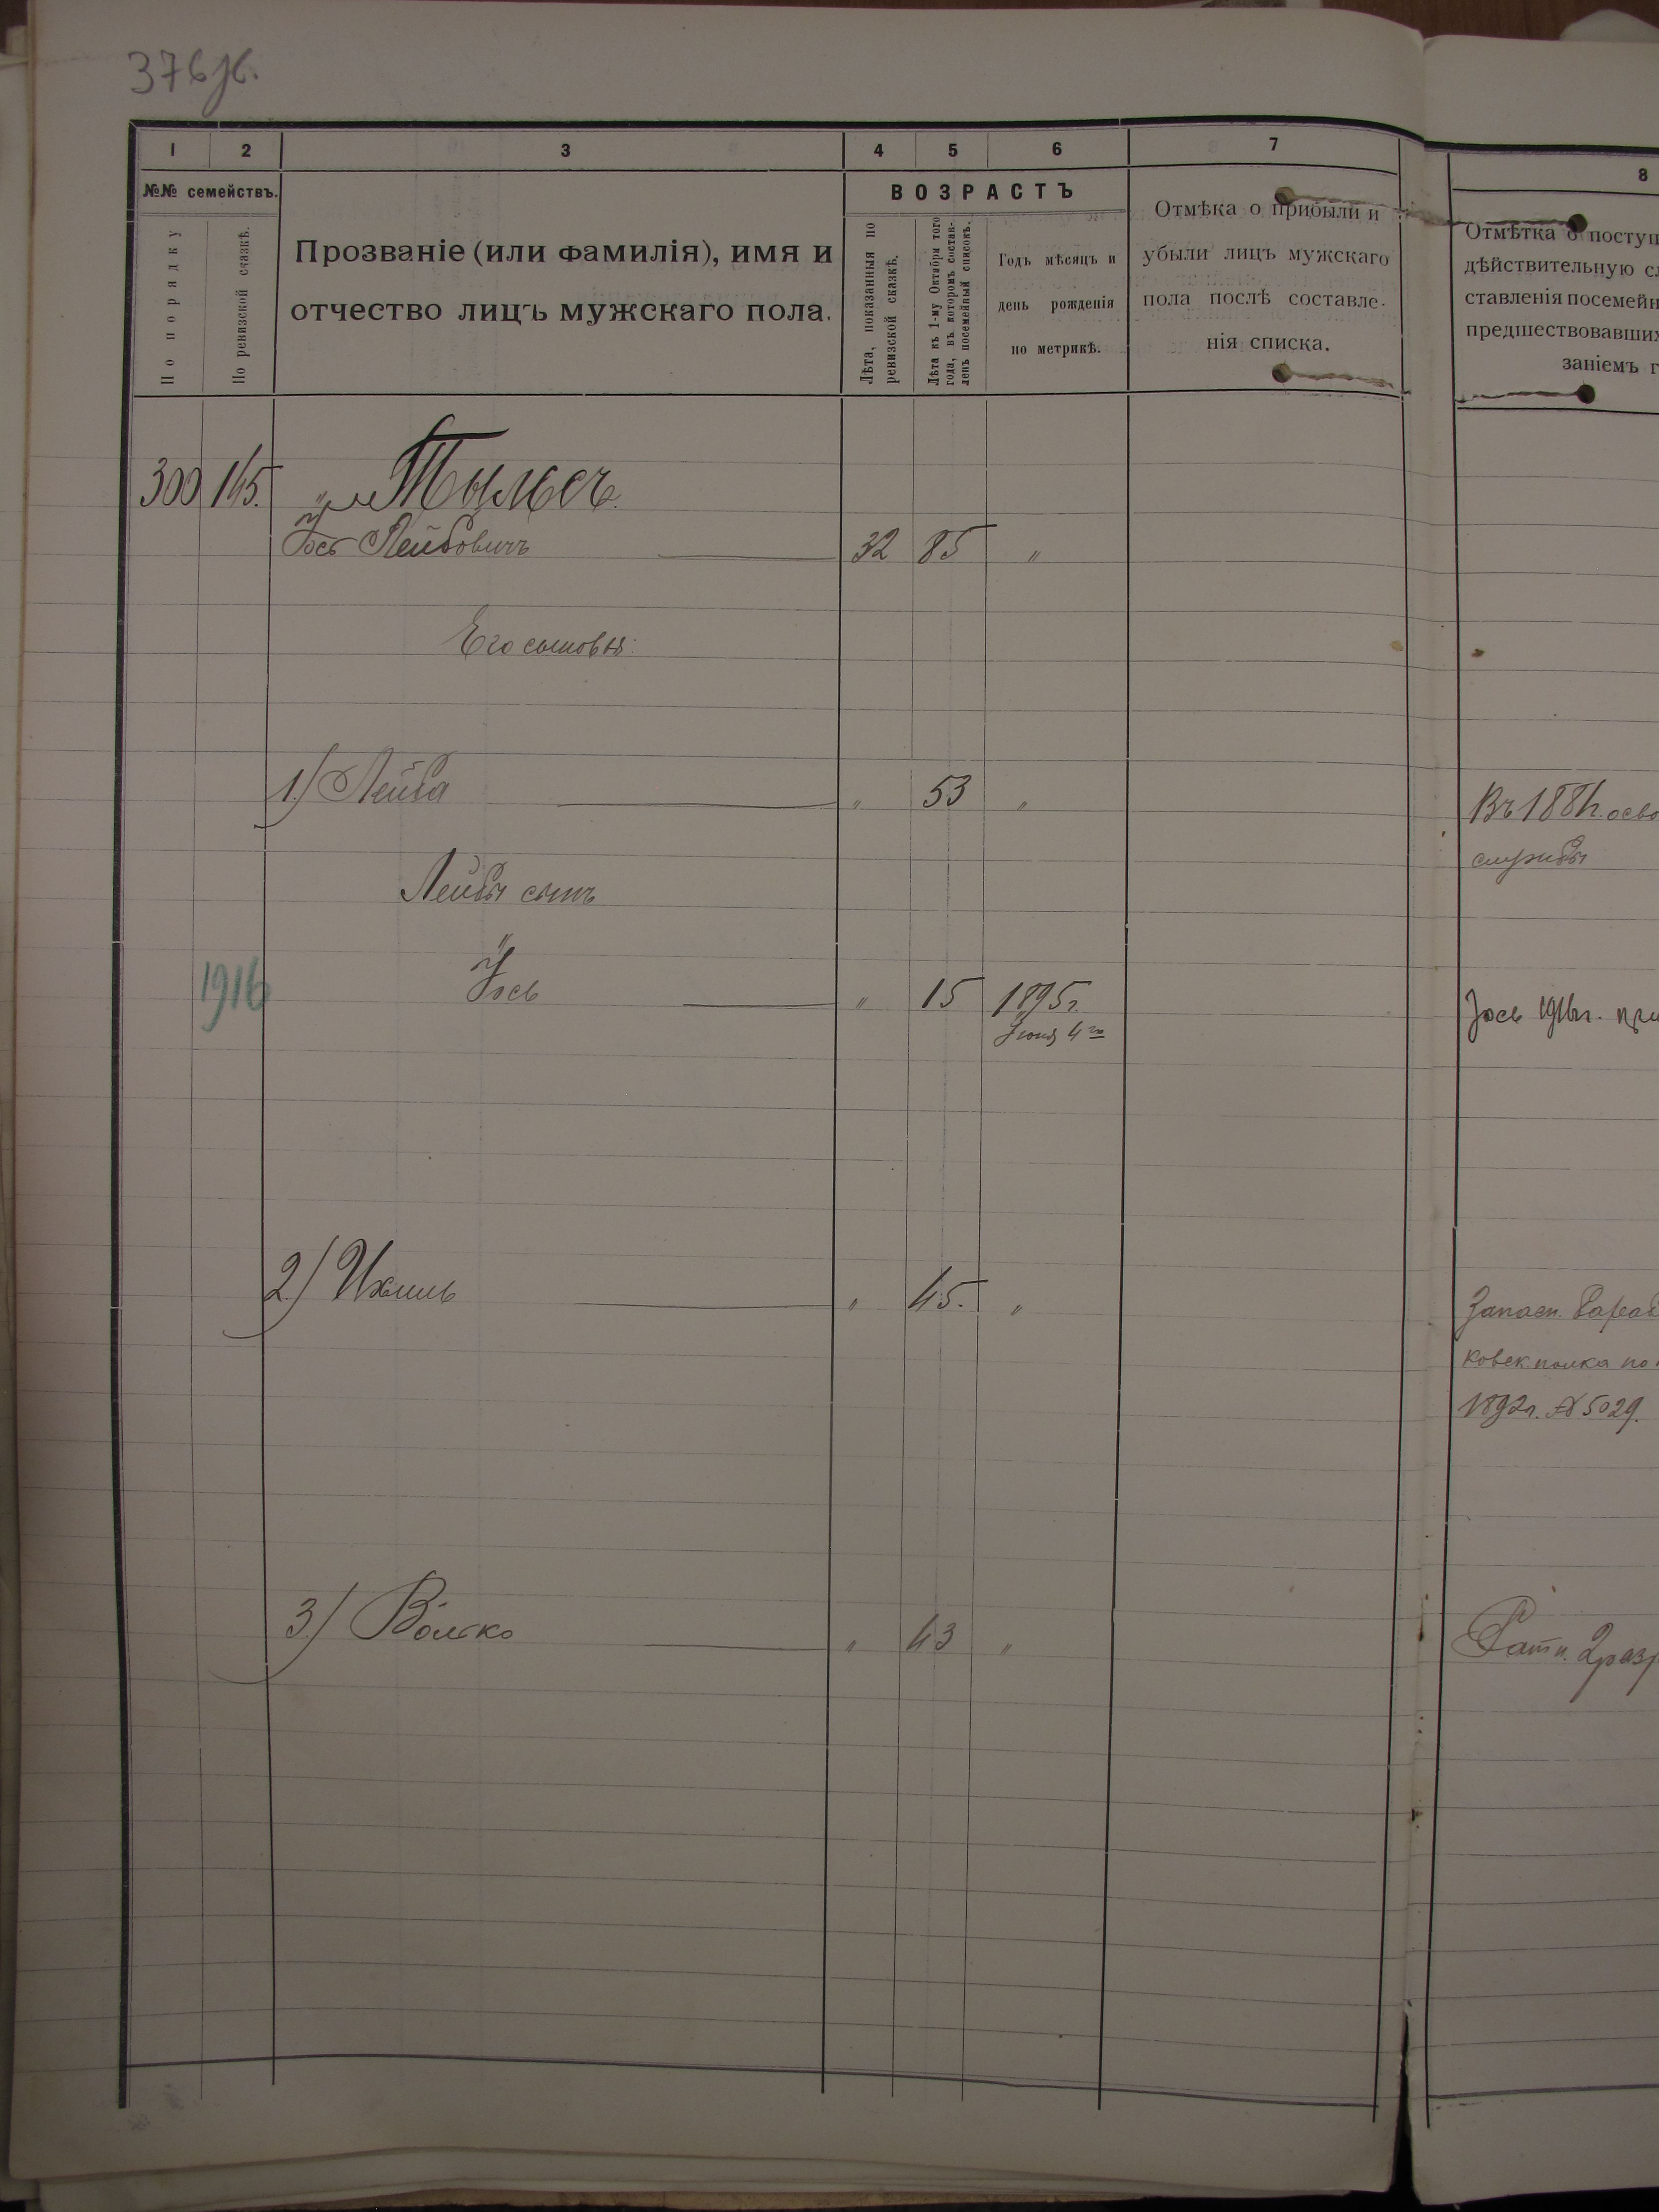 376об.
1 2 3 4 5 6 7 8
№№ семействъ.
По порядку
По ревизской сказкѣ.
Прозваніе (или фамилія), имя и
отчество лицъ мужскаго пола.
ВОЗРАСТЪ
Лѣта, показанныя по
ревизской сказкѣ.
Лѣта къ 1-му Октября того
года, въ которомъ состав-
ленъ посемейный списокъ.
Годъ мѣсяцъ и
день рожденія
по метрикѣ.
Отмѣка о прибыли и
убыли лицъ мужскаго
пола послѣ составле-
нія списка.
Отмѣтка о поступ
дѣйствительную сл
ставленія посемейн
предшествовавших
заніемъ г
300 145.
Іось Лейбовичъ 32 85 "
Его сыновья:
1.) Лейба " 53 "
Въ 1881г. осво
службы
Лейбы сынъ
1916 Іось " 15 1895г.
Іюня 4го
Іось 1916г. при
2) Ихиль " 45. "
Запасн. рядов
полка по
1892г. № 5029.
3.) Волько " 43 "
Ратн. 2 разр